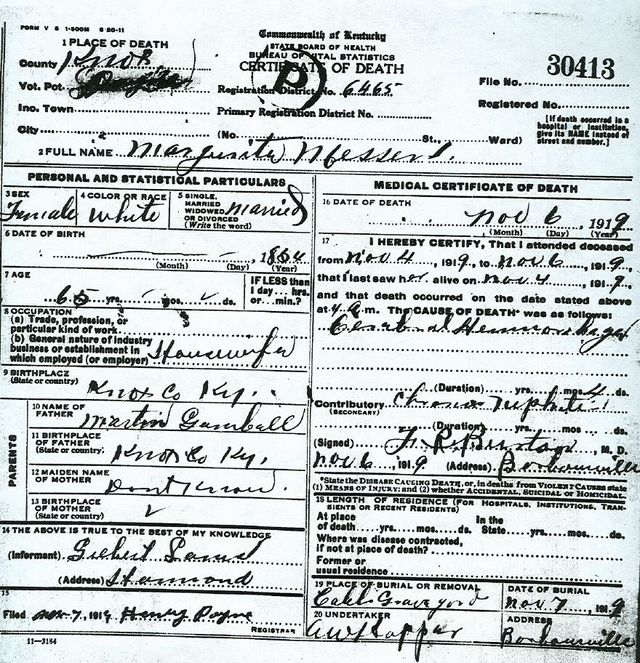 FORM V S 1-500M 6-20-11
Commonwealth of Kentucky
STATE BOARD OF HEALTH
BUREAU OF VITAL STATISTICS
CERTIFICATE OF DEATH
1 PLACE OF DEATH
County Knox
Vot. Pct.
Inc. Town
City
(No. St., Ward)
Registration District No. 6465
Primary Registration District No.
File No. 30413
Registered No.
[If death occurred in a hospital or institution, give its NAME instead of street and number.]
2 FULL NAME Margurite Messer
PERSONAL AND STATISTICAL PARTICULARS
3 SEX Female
4 COLOR OR RACE White
5 SINGLE, MARRIED WIDOWED OR DIVORCED (Write the word) Married
6 DATE OF BIRTH
1854
(Month) (Day) (Year)
7 AGE
65 yrs. mos. ds.
IF LESS than 1 day... hrs. or ... min.?
8 OCCUPATION
(a) Trade, profession, or particular kind of work
(b) General nature of industry business or establishment in which employed (or employer) Housewife
9 BIRTHPLACE (State or country) Knox Co Ky.
PARENTS
10 NAME OF FATHER Martin Gambell
11 BIRTHPLACE OF FATHER (State or country) Knox Co Ky.
12 MAIDEN NAME OF MOTHER Dont Know
13 BIRTHPLACE OF MOTHER (State or country)
14 THE ABOVE IS TRUE TO THE BEST OF MY KNOWLEDGE
(Informant) Gilbert
(Address)
15
Filed Nov. 7, 1919 Henry Payne
REGISTRAR
11-3184
MEDICAL CERTIFICATE OF DEATH
16 DATE OF DEATH
Nov 6, 1919
(Month) (Day) (Year)
17 I HEREBY CERTIFY, That I attended deceased
from Nov 4 1919, to Nov 6, 1919,
that I last saw her alive on Nov 4, 1919,
and that death occurred on the date stated above
at m. The CAUSE OF DEATH* was as follows:
Cerebral Hemmorhage
(Duration) yrs. mos. 4 ds.
Contributory (SECONDARY) Chronic
(Duration) yrs. mos. ds.
(Signed) M. D.
Nov 6, 1919 (Address) Barbourville
*State the DISEASE CAUSING DEATH, or, in deaths from VIOLENT CAUSES state
(1) MEANS OF INJURY; and (2) whether ACCIDENTAL, SUICIDAL or HOMICIDAL.
18 LENGTH OF RESIDENCE (FOR HOSPITALS, INSTITUTIONS, TRANSIENTS OR RECENT RESIDENTS)
At place of death yrs. mos. ds.
In the State yrs. mos. ds.
Where was disease contracted, if not at place of death?
Former or usual residence
19 PLACE OF BURIAL OR REMOVAL Graveyard
DATE OF BURIAL Nov 7, 1919
20 UNDERTAKER
ADDRESS Barbourville